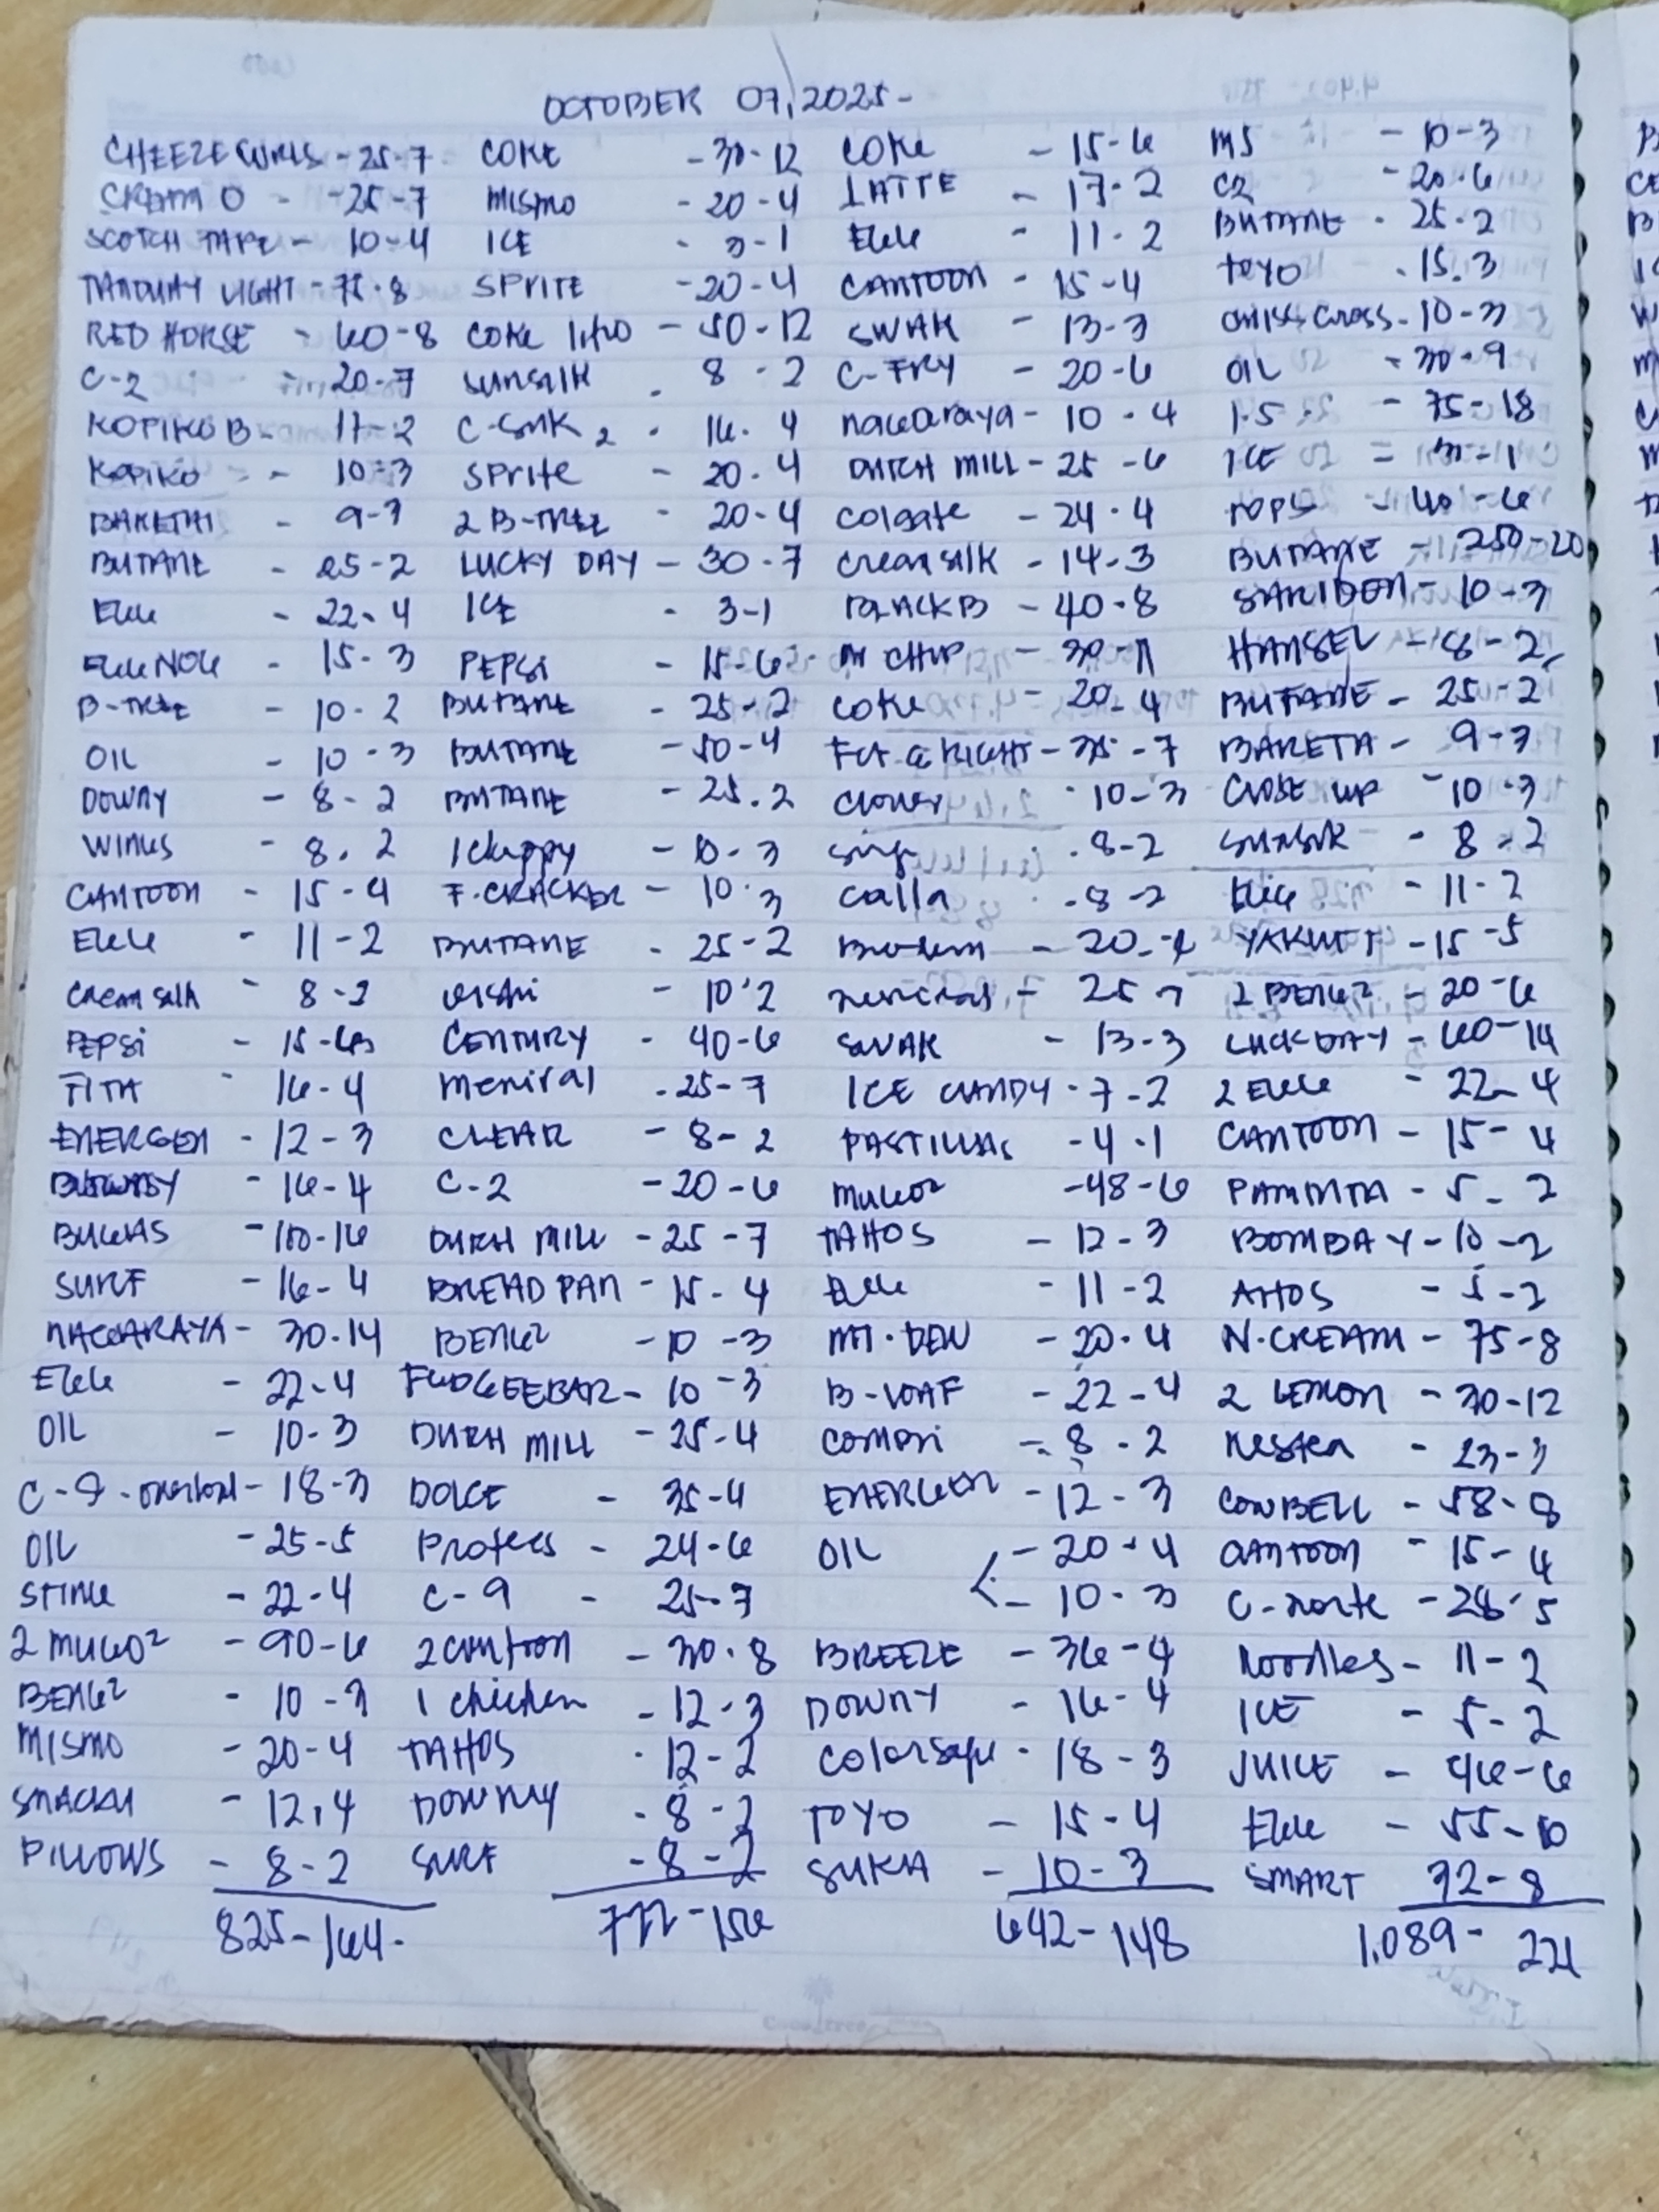 OCTOBER 07, 2025-
CHEEZE CURLS - 25-7
CREAM O - 25-7
SCOTCH TAPE - 10-4
TANDUAY LIGHT - 75-8
RED HORSE - 60-8
C-2 - 20-7
KOPIKO B - 11-2
KOPIKO - 10-3
BARETA - 9-3
BUTANE - 25-2
EGG - 22-4
B-TREE - 10-2
OIL - 10-3
DOWNY - 8-2
WINGS - 8-2
CANTOON - 15-4
EGG - 11-2
CREAM SILK - 8-2
PEPSI - 15-6
TITA - 16-4
ENERGEN - 12-3
- 16-4
BUGAS - 100-16
SURF - 16-4
NAGARAYA - 30-14
EGG - 22-4
OIL - 10-3
- 18-3
OIL - 25-5
STING - 22-4
2 MUGO² - 90-6
BENG² - 10-3
MISMO - 20-4
SNACKU - 12-4
PILLOWS - 8-2
825-164-
COKE - 30-12
MISMO - 20-4
ICE - 3-1
SPRITE - 20-4
COKE - 50-12
SUNSILK - 8-2
C-SILK 2 - 16-4
SPRITE - 20-4
2 B-TREE - 20-4
LUCKY DAY - 30-7
ICE - 3-1
PEPSI - 15-6
BUTANE - 25-2
BUTANE - 50-4
BUTANE - 25-2
- 10-3
F. CRACKER - 10-3
BUTANE - 25-2
OISHI - 10-2
CENTURY - 40-6
MENIRAL - 25-7
CLEAR - 8-2
C-2 - 20-6
DUCH MILL - 25-7
BREAD PAN - 15-4
BENG² - 10-3
FUDGEEBAR - 10-3
DUCH MILL - 25-4
DOLCE - 35-4
- 24-6
C-9 - 25-7
2 CANTOON - 30-8
1 CHICKEN - 12-3
TAHOS - 12-2
DOWNY - 8-2
SURF - 8-2
772-156
COKE - 15-6
LATTE - 17-2
EGG - 11-2
CANTOON - 15-4
SWAK - 13-3
C-FRY - 20-6
NAGARAYA - 10-4
DUTCH MILL - 25-6
COLGATE - 24-4
CREAM SILK - 14-3
BLACK B - 40-8
M CHUP - 30-11
COKE - 20-4
- 35-7
CLOVER - 10-3
- 8-2
CALLA - 8-2
- 20-
- 25-7
SWAK - 13-3
ICE CANDY - 7-2
PASTILLAS - 4-1
MUGO² - 48-6
TAHOS - 12-3
EGG - 11-2
MT. DEW - 20-4
B-LOAF - 22-4
- 8-2
ENERGEN - 12-3
OIL - 20-4
- 10-3
BREEZE - 36-4
DOWNY - 16-4
COLORSAFE - 18-3
TOYO - 15-4
SUKA - 10-3
642-148
MS - 10-3
C2 - 20-6
BUTANE - 25-2
TOYO - 15-3
CRISS CROSS - 10-3
OIL - 30-9
1.5 - 75-18
ICE = 3-1
POPS - 40-6
BUTANE - 250-20
SARIDON - 10-3
HANSEL - 8-2
BUTANE - 25-2
BARETA - 9-3
CLOSE UP - 10-3
SUNSILK - 8-2
EGG - 11-2
YAKULT - 15-5
2 BENG² - 20-6
LUCKDAY - 60-14
2 EGG - 22-4
CANTOON - 15-4
PAMINTA - 5-2
BOMBAY - 10-2
AHOS - 5-2
N. CREAM - 75-8
2 LEMON - 30-12
NESTEA - 23-3
COWBELL - 58-8
CANTOON - 15-4
- 28-5
NOODLES - 11-2
ICE - 5-2
JUICE - 46-6
EGG - 55-10
SMART 32-8
1,089-221